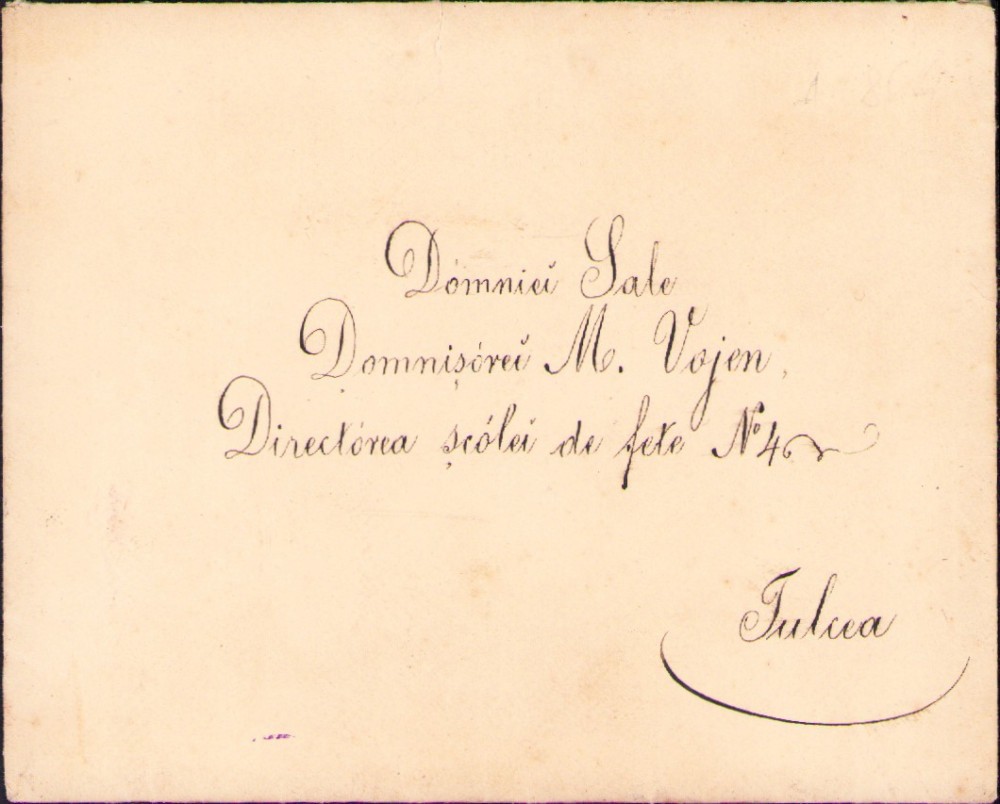 Domniei Sale
Domnișórei M. Vojen,
Directórea șcólei de fete Nº 4
Tulcea